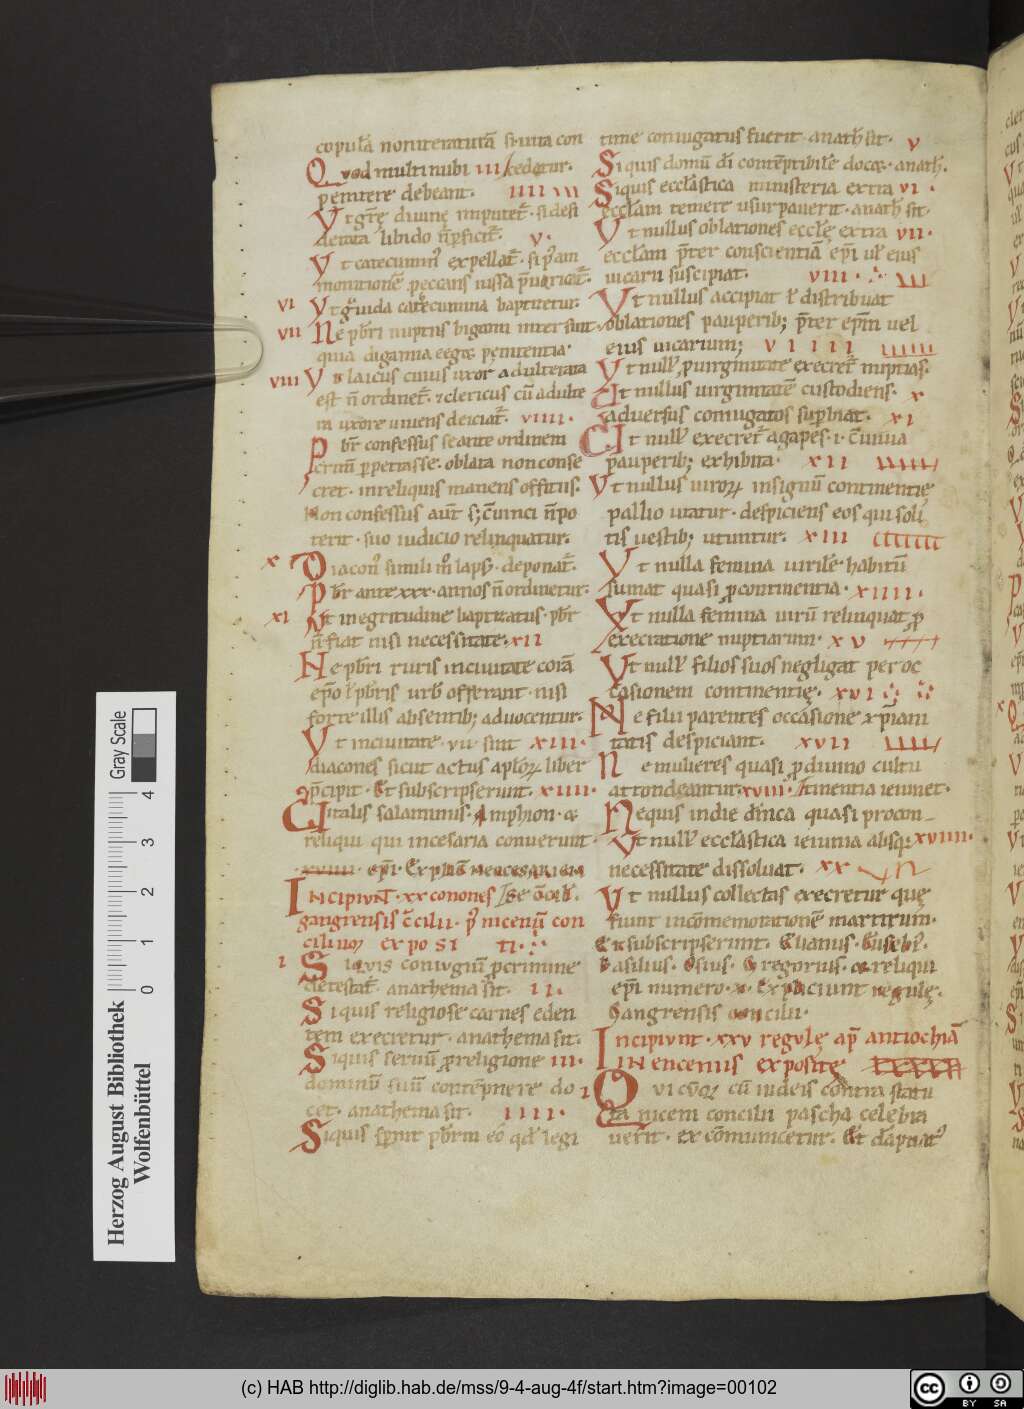 copul̄a non iteraturā si·uita con
Quod multi nubi III
penitere debeant. IIII
Vt grē diuinę imputet̄· si desi
derata libido n̄ p̄ficit̄. V.
Vt catecumin̄ expellat̄· si p̄ am
monitionē peccans iussa p̄uaricat̄.
VI Vt grauida catecumina baptizetur.
VII Ne pb̄ri nuptiis bigami intersint
quia digamia eget pęnitentia·
VIII Vt laicus cuius uxor adulterata
est n̄ ordinet̄· & clericus cū adulte
ra uxore uiuens deiciat̄. VIIII.
Pb̄r confessus se ante ordinem
crimē perpetrasse· oblata non conse
cret· in reliquis manens officiis.
Non confessus aūt si ↄuinci n̄ po
terit· suo iudicio relinquatur.
X Diacon᷒ simili m̊ laps᷒· deponat̄.
Pb̄r ante xxx· annos n̄ ordinetur.
XI Vt in egritudine baptizatus· pb̄r
n̄ fiat nisi necessitate· XII
Ne pb̄ri ruris in ciuitate corā
ep̄o ł pb̄ris urb᷒ offerant· nisi
forte illis absentib; aduocentur.
Vt in ciuitate· vii· sint XIII·
diacones sicut actus apl̄oꝝ liber
p̄cipit· Et subscripserunt. XIIII·
Uitalis salaminis· Amphion· &
reliqui qui in cesaria conuenerunt·
XVIIII· ep̄i· Expliciūt neocesarien
Incipiunt· xx canones
gangrensis ↄ̄cilii· p᷒ nicenū con
cilium exposi ti·
I Si quis coniugiū p̄ crimine
detestat̄· anathema sit· II.
Si quis religiose carnes eden
tem execretur· anathema sit.
Si quis seruū p̄ religione III.
dominū suū contēpnere do
cet· anathema sit· IIII.
Si quis sp̄nit pb̄rm eo qd̄ legi
time coniugatus fuerit· anath̄ sit· V
Si quis domū dī contēptibilē docet· anath̄.
Si quis eccl̄astica ministeria extra VI·
eccl̄am temere usurpauerit· anath̄ sit·
Vt nullus oblationes eccl̄ę extra VII·
eccl̄am p̄ter conscientiā ep̄i ul̄ eius
uicarii suscipiat. VIII·
Vt nullus accipiat ł distribuat
oblationes pauperib; p̄ter ep̄m uel
eius uicarium; VIIII
Vt null᷒ p̄ uirginitate execret̄ nuptias·
Vt nullus uirginitatē custodiens. X
aduersus coniugatos sup̄biat· XI
Vt null᷒ execret̄ agapes·i·ↄ̄uiuia
pauperib; exhibita· XII
Vt nullus uiroꝝ insignū continentię
pallio utatur· despiciens eos qui soli
tis uestib; utuntur. XIII
Vt nulla femina uirilē habitū
sumat quasi p̄ continentia· XIIII·
Vt nulla femina uirū relinquat p̄
execratione nuptiarum· XV
Vt null᷒ filios suos negligat per oc
casionem continentię. XVI
Ne filii parentes occasione xp̄iani
tatis despiciant. XVII
Ne mulieres quasi p̄ diuino cultu
attondeantur· XVIII
Ne quis in die dn̄ica quasi p̄ con
Vt null᷒ eccl̄astica ieiunia absq; XVIIII·
necessitate dissoluat. XX
Vt nullus collectas execretur quę
fiunt in ↄ̄memorationē martirum·
Et subscripserunt. Elianus· Euseb᷒.
Basilius. Osius· Gregorius· & reliqui
ep̄i numero· x· Expliciunt regulę·
Gangrensis concilii·
Incipiunt· xxv regulę ap̄ antiochiā
in enceniis expositę
I Qui cūqꝫ cū iudeis contra statu
ta niceni concilii pascha celebra
uerit· excōmunicetur. Et dāpnat᷒
Herzog August Bibliothek
Wolfenbüttel
Gray Scale
0 1 2 3 4
(c) HAB http://diglib.hab.de/mss/9-4-aug-4f/start.htm?image=00102
cc BY SA